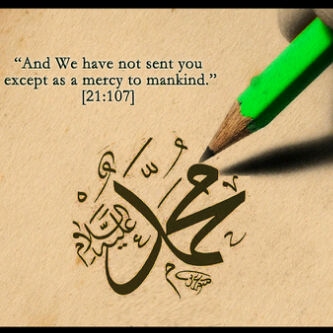 “And We have not sent you
except as a mercy to mankind.”
[21:107]
محمد
عليه السلام